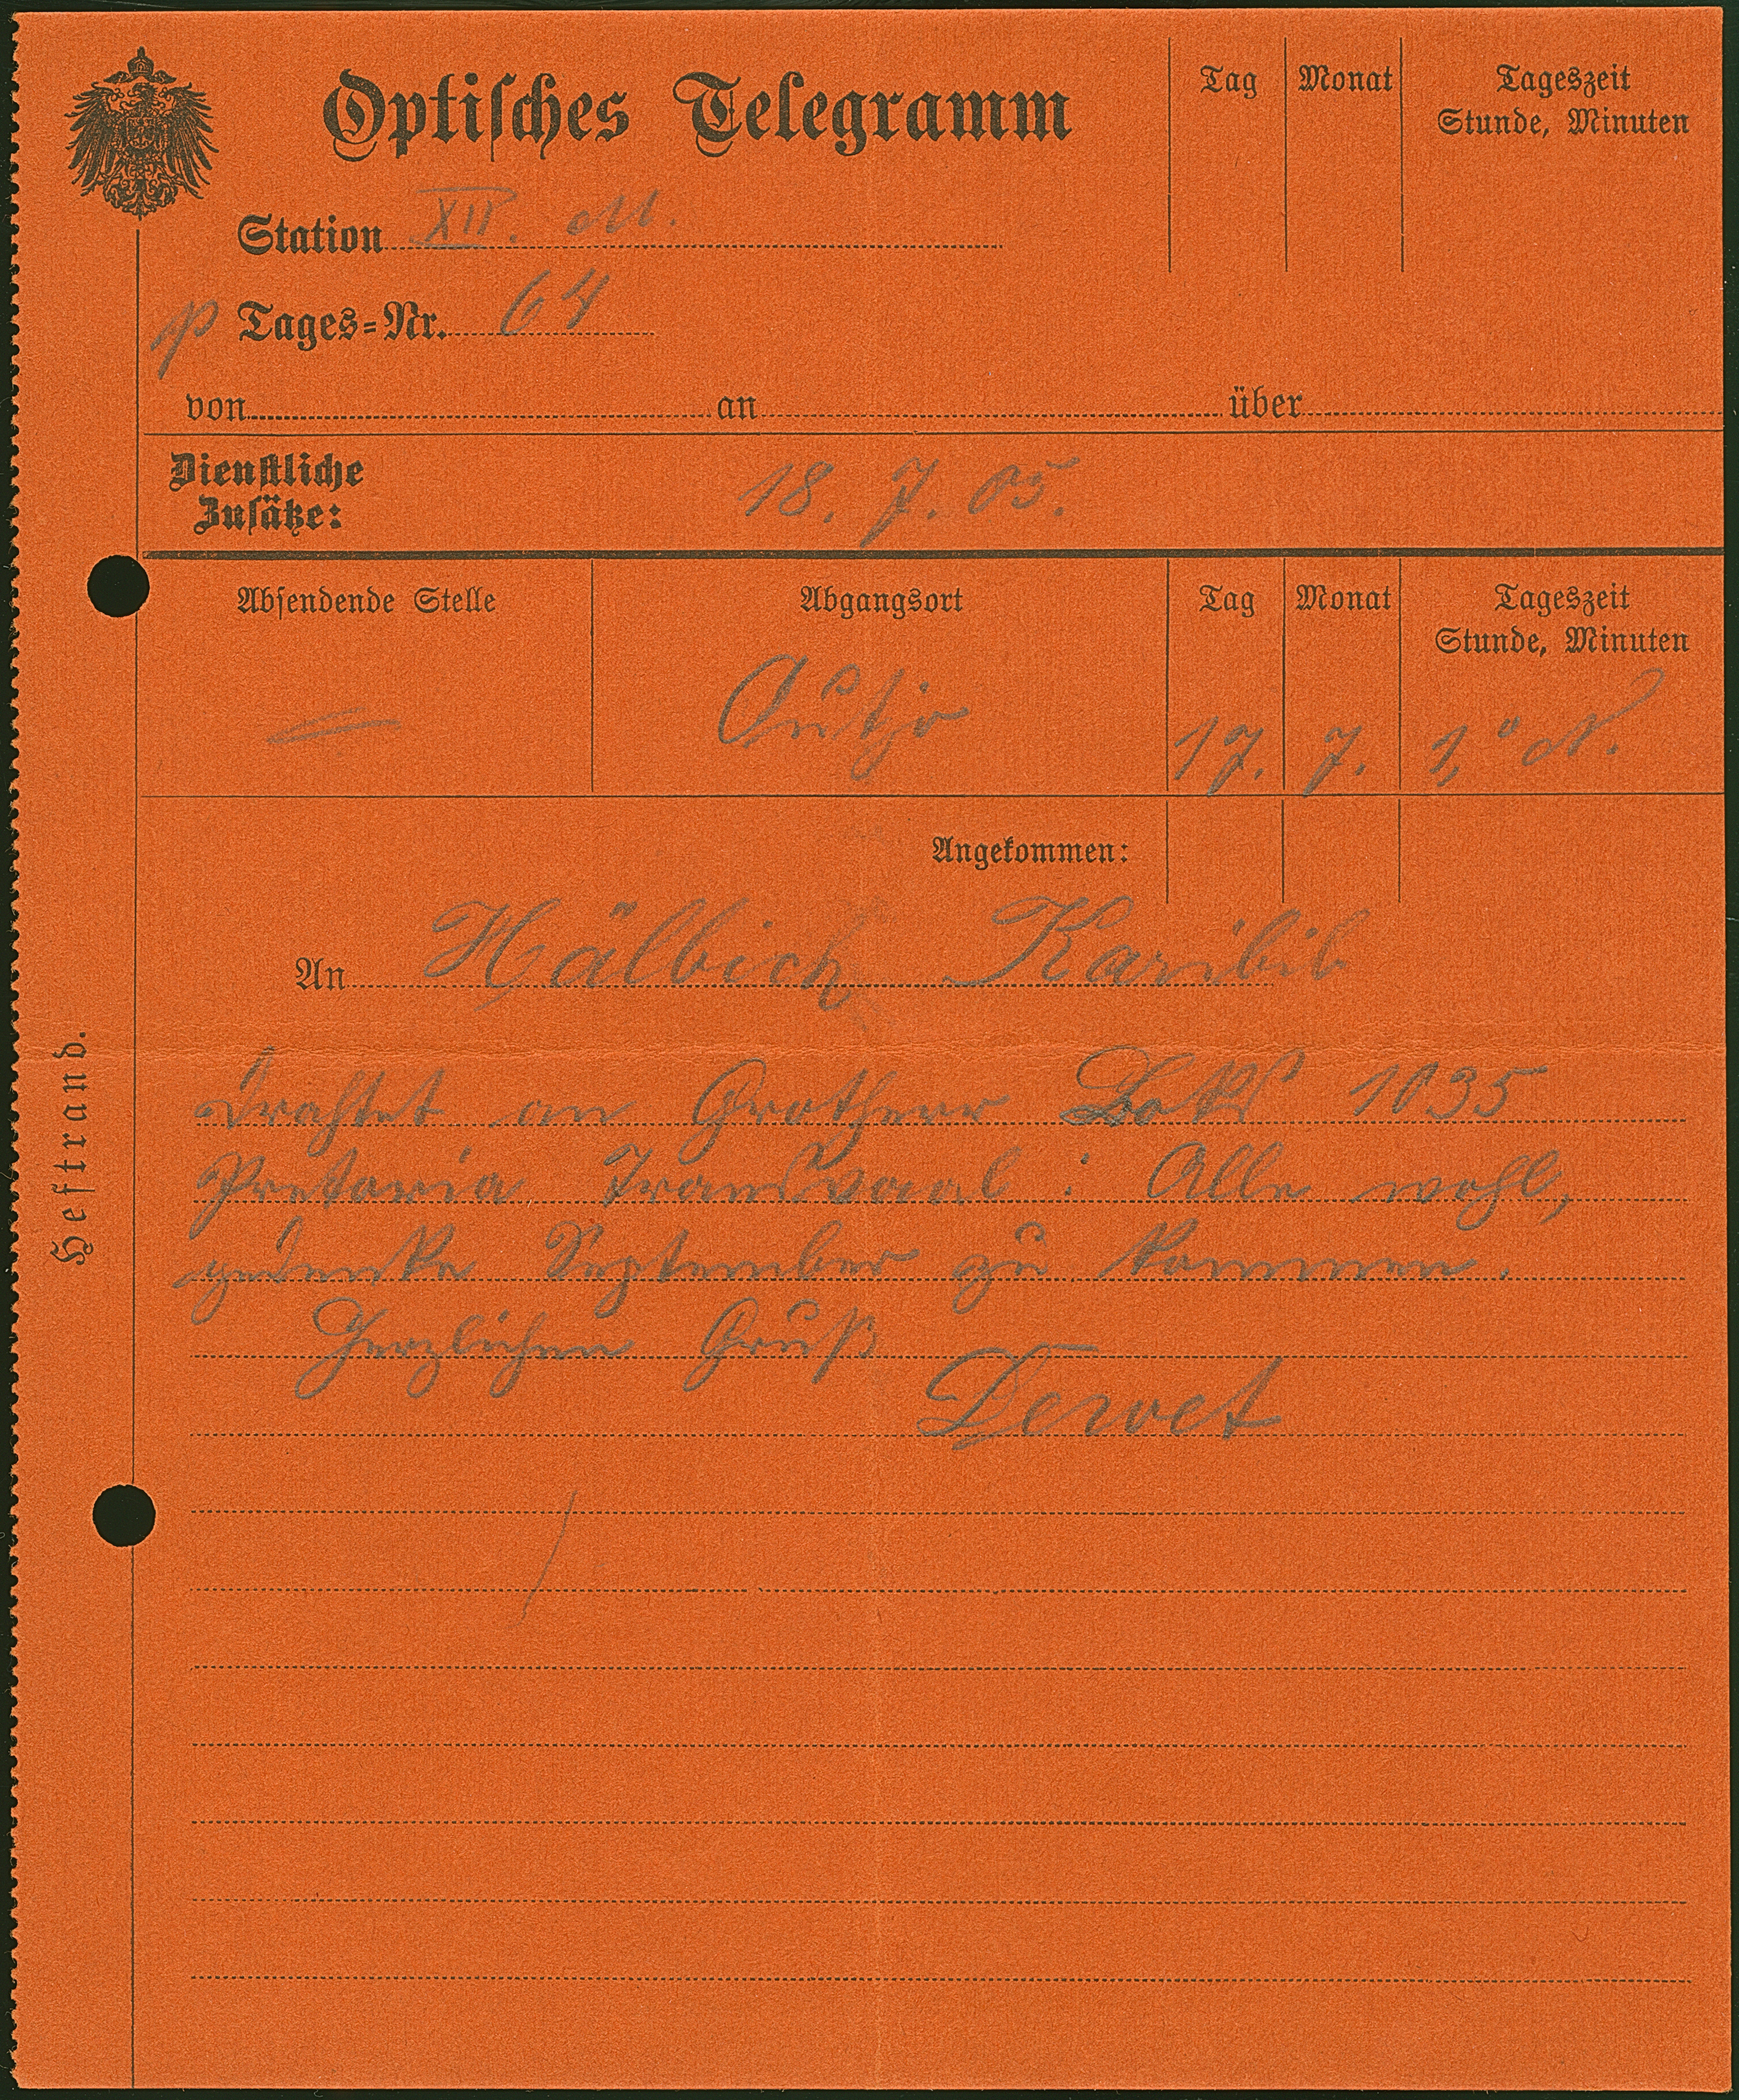 Optisches Telegramm
Tag Monat Tageszeit
Stunde, Minuten
Station XII. M.
p Tages=Nr. 64
von an über
Dienstliche
Zusätze:
18. 7. 05.
Absendende Stelle Abgangsort Tag Monat Tageszeit
Stunde, Minuten
Outjo 17. 7. 1,° N.
Angekommen:
An Hälbich Karibib
Heftrand.
drahtet an Grotherr 1035
Pretoria Transvaal: Alle wohl,
gedenke September zu kommen.
Herzlichen Gruß
Dewet